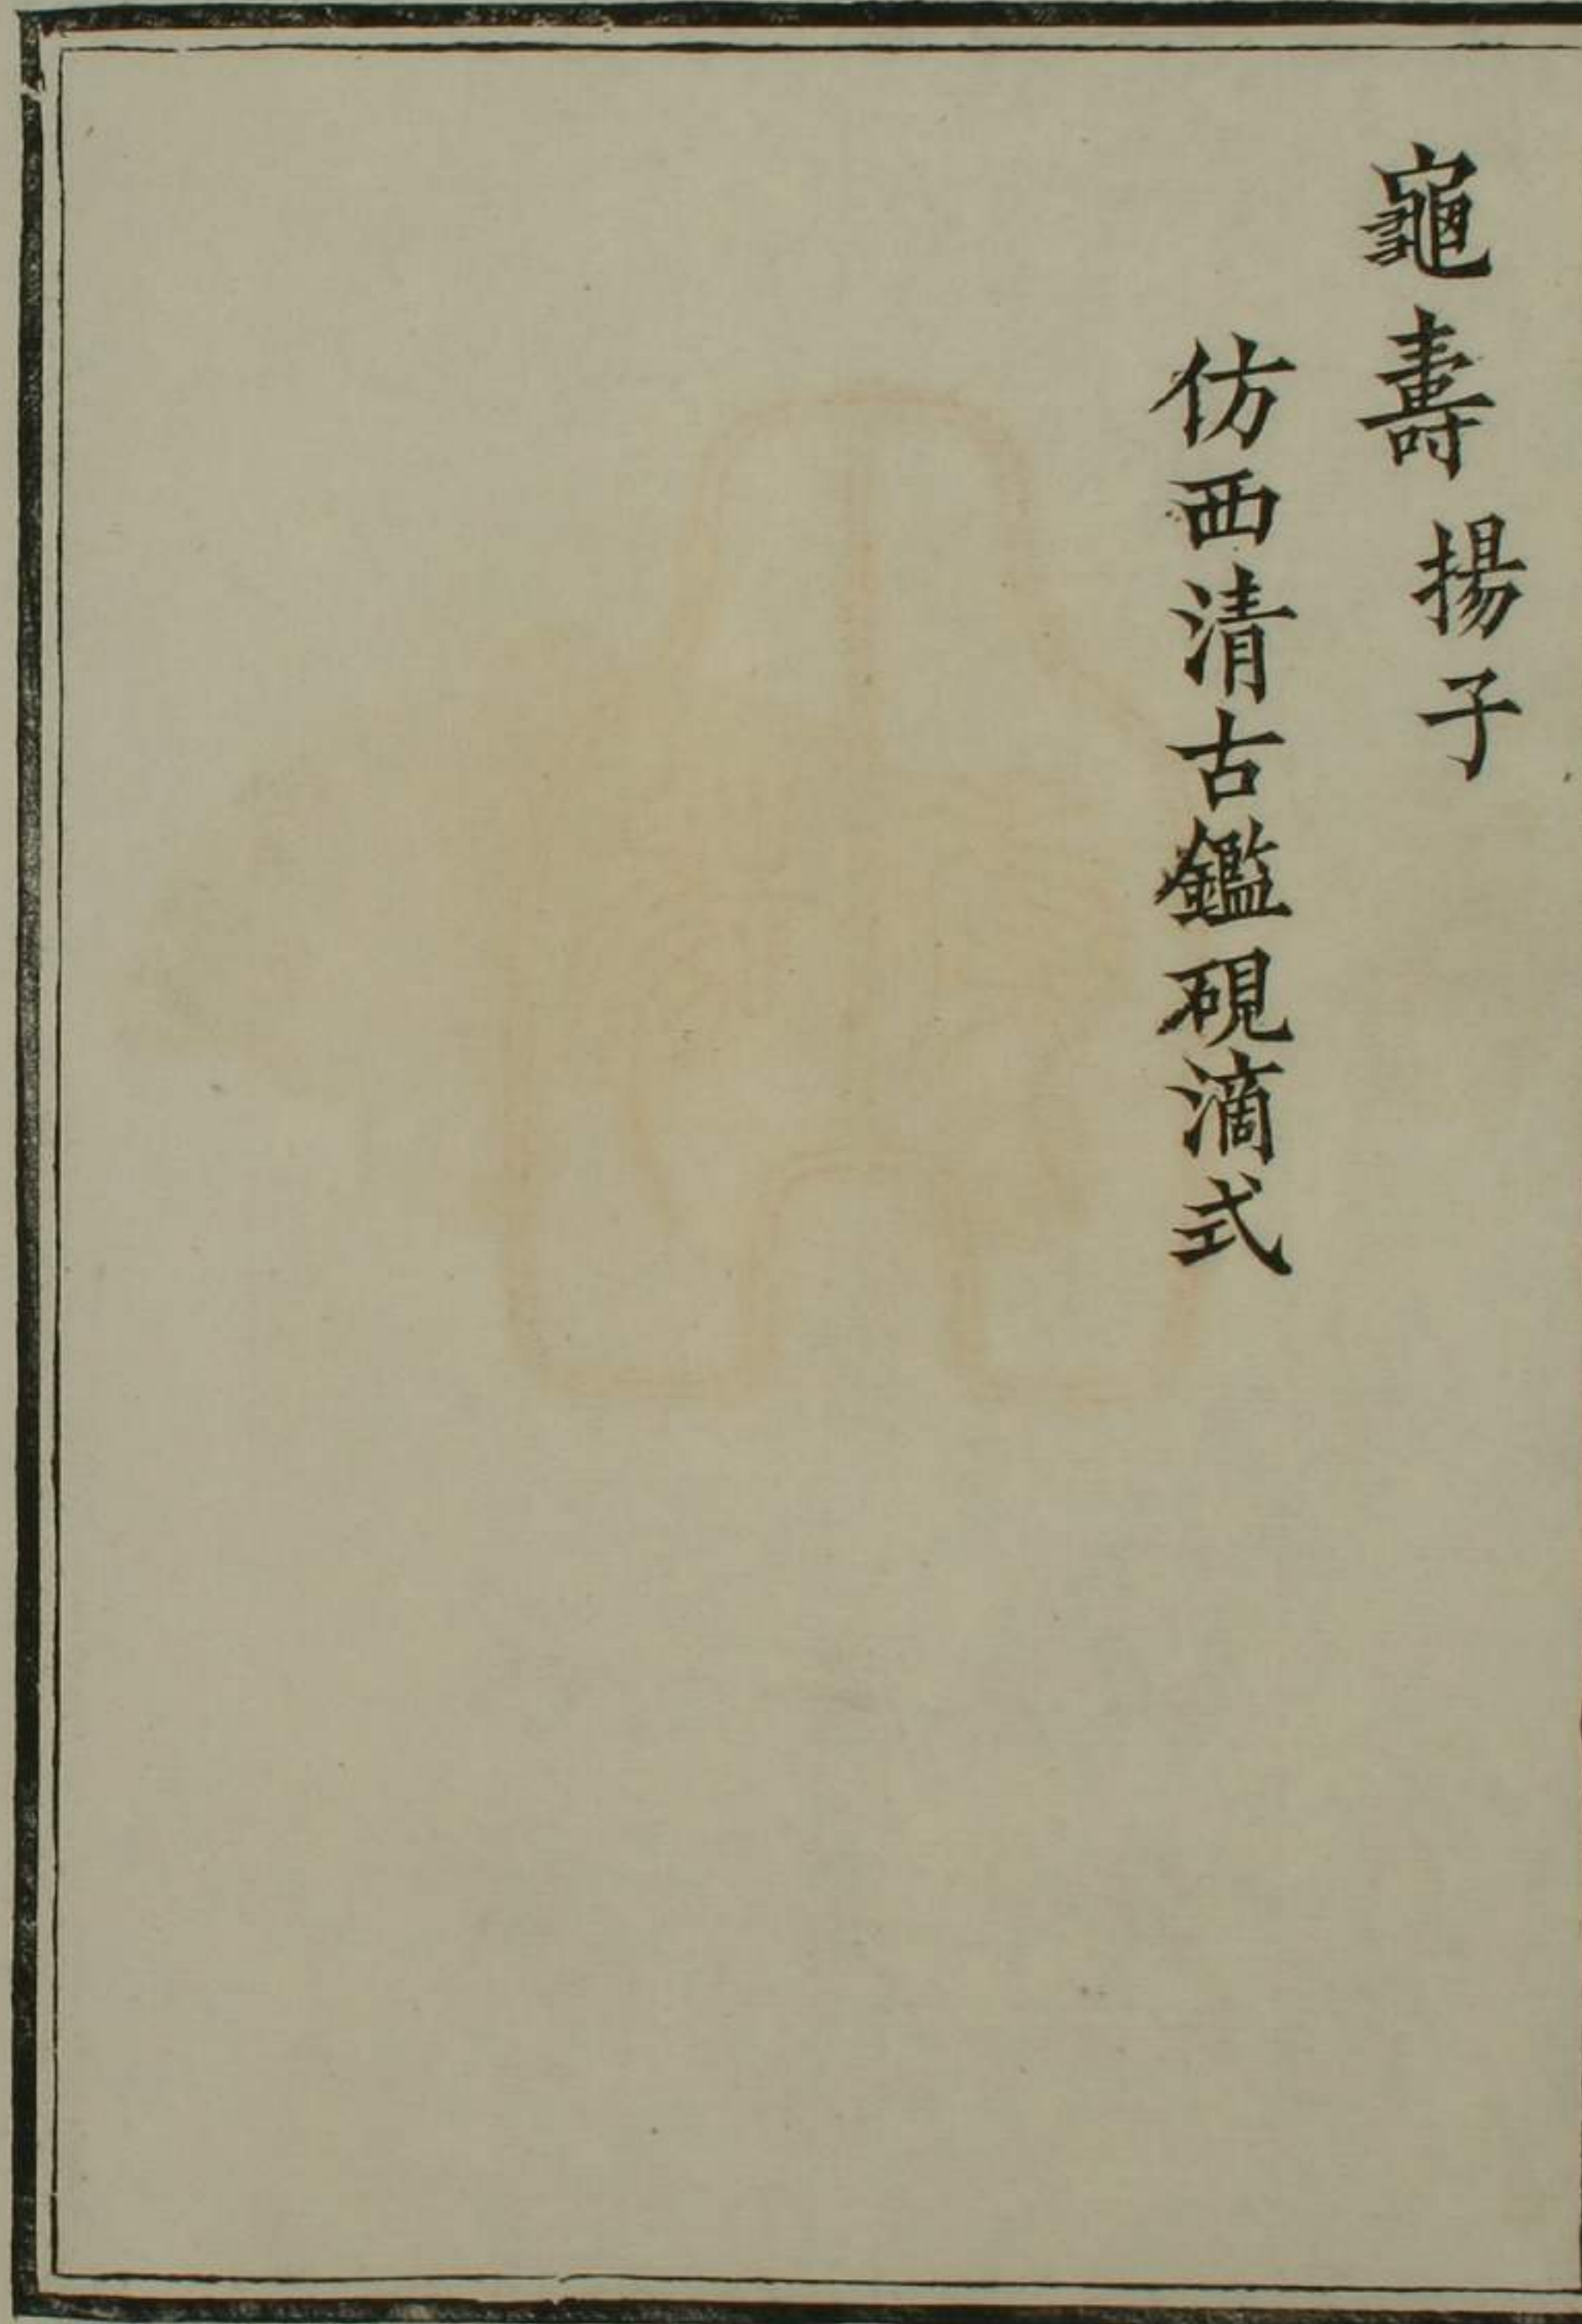 龜壽 揚子
仿西清古鑑硯滴式